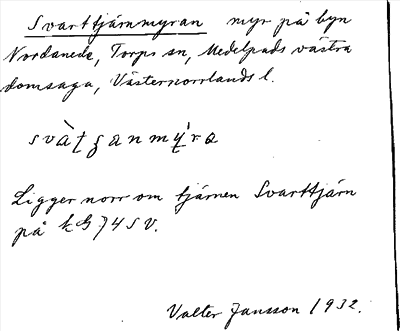 Svarttjärnmyran myr på byn
Nordanede, Torps sn, Medelpads västra
domsaga, Västernorrlands l.
Ligger norr om tjärnen Svarttjärn
på kbl 74 SV.
Valter Jansson 1932.